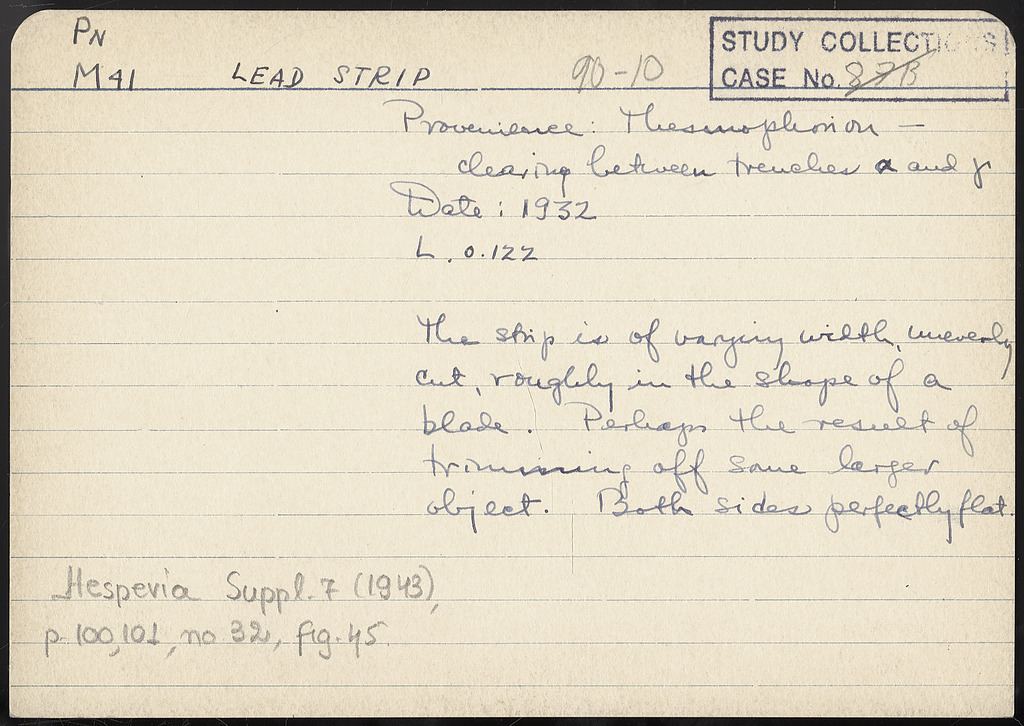 PN
M41 LEAD STRIP 90-10
STUDY COLLECTIONS
CASE No. 87B
Provenience: Thesmophorion —
clearing between trenches α and γ
Date: 1932
L. 0.122
The strip is of varying width, unevenly
cut, roughly in the shape of a
blade. Perhaps the result of
trimming off some larger
object. Both sides perfectly flat.
Hesperia Suppl. 7 (1943),
p. 100,101, no 32, fig. 45.